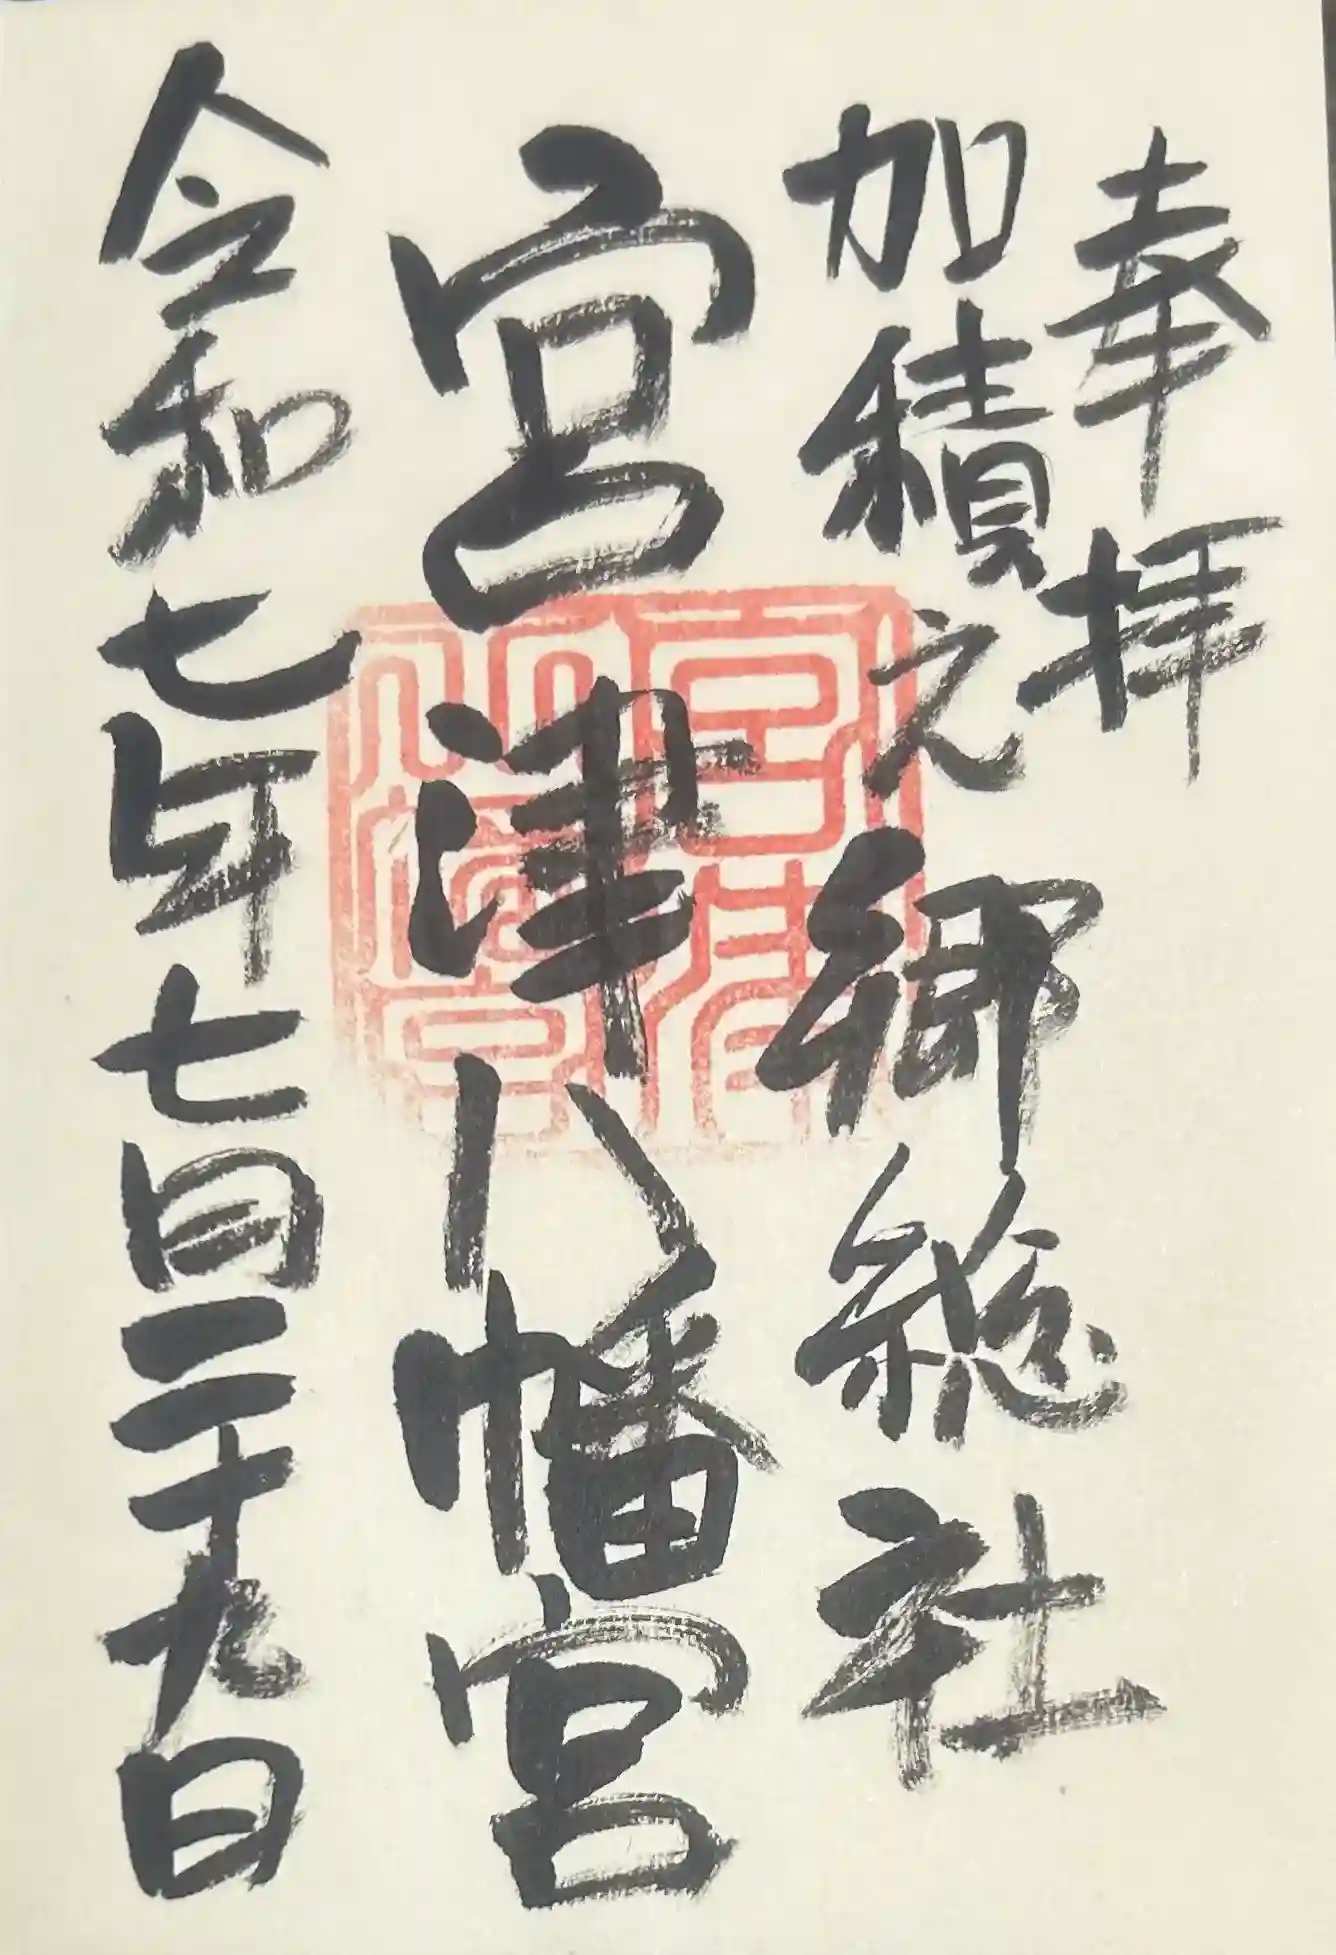 奉拝
加積之郷総社
宮津八幡宮
令和七年七月二十九日
宮津八幡宮